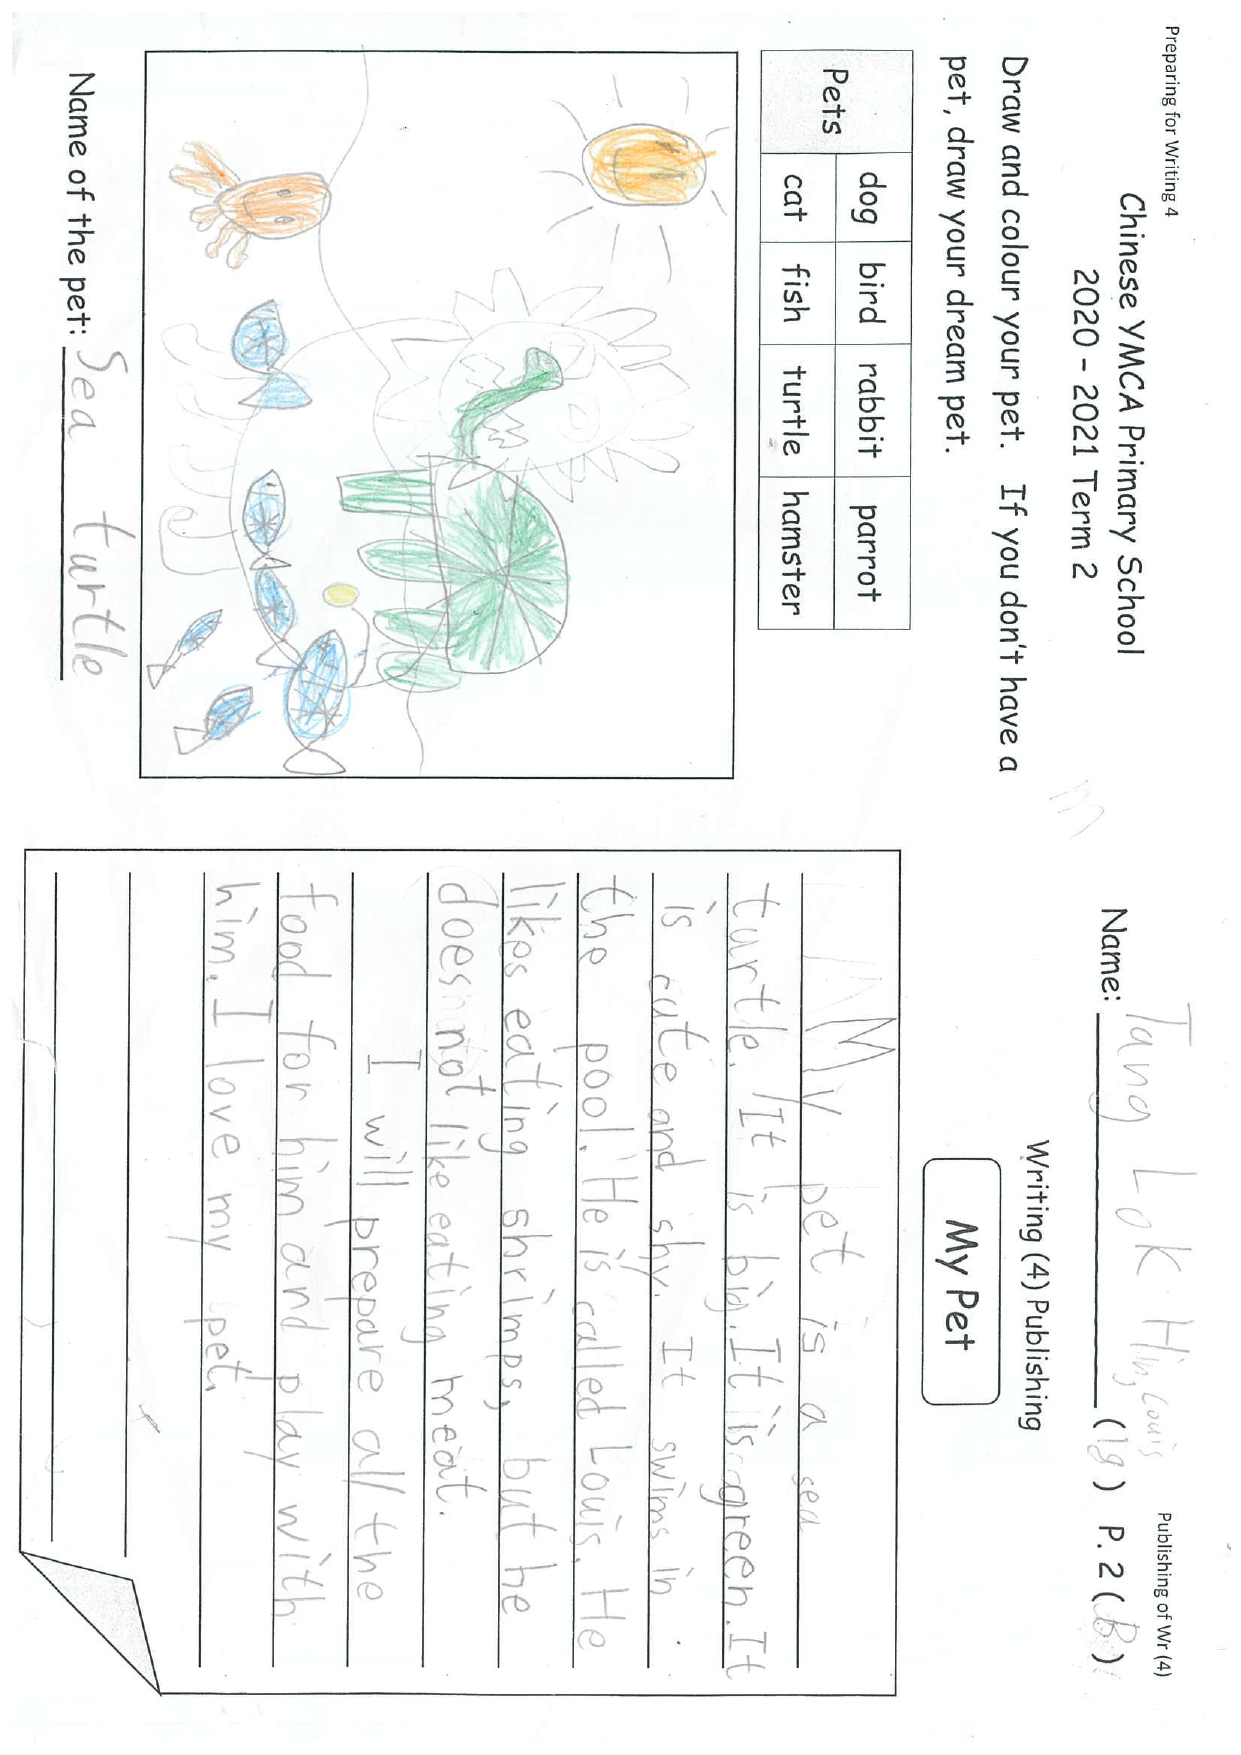 Preparing for Writing 4
Chinese YMCA Primary School
2020 - 2021 Term 2
Draw and colour your pet. If you don't have a
pet, draw your dream pet.
Pets
dog bird rabbit parrot
cat fish turtle hamster
Name of the pet: Sea turtle
Publishing of Wr (4)
Name: Tang Lok Hin, Louis (18) P. 2 (B)
Writing (4) Publishing
My Pet
My pet is a sea
turtle. It is big. It is green. It
is cute and shy. It swims in
the pool. He is called Louis. He
likes eating shrimps, but he
does not like eating meat.
I will prepare all the
food for him and play with
him. I love my pet.